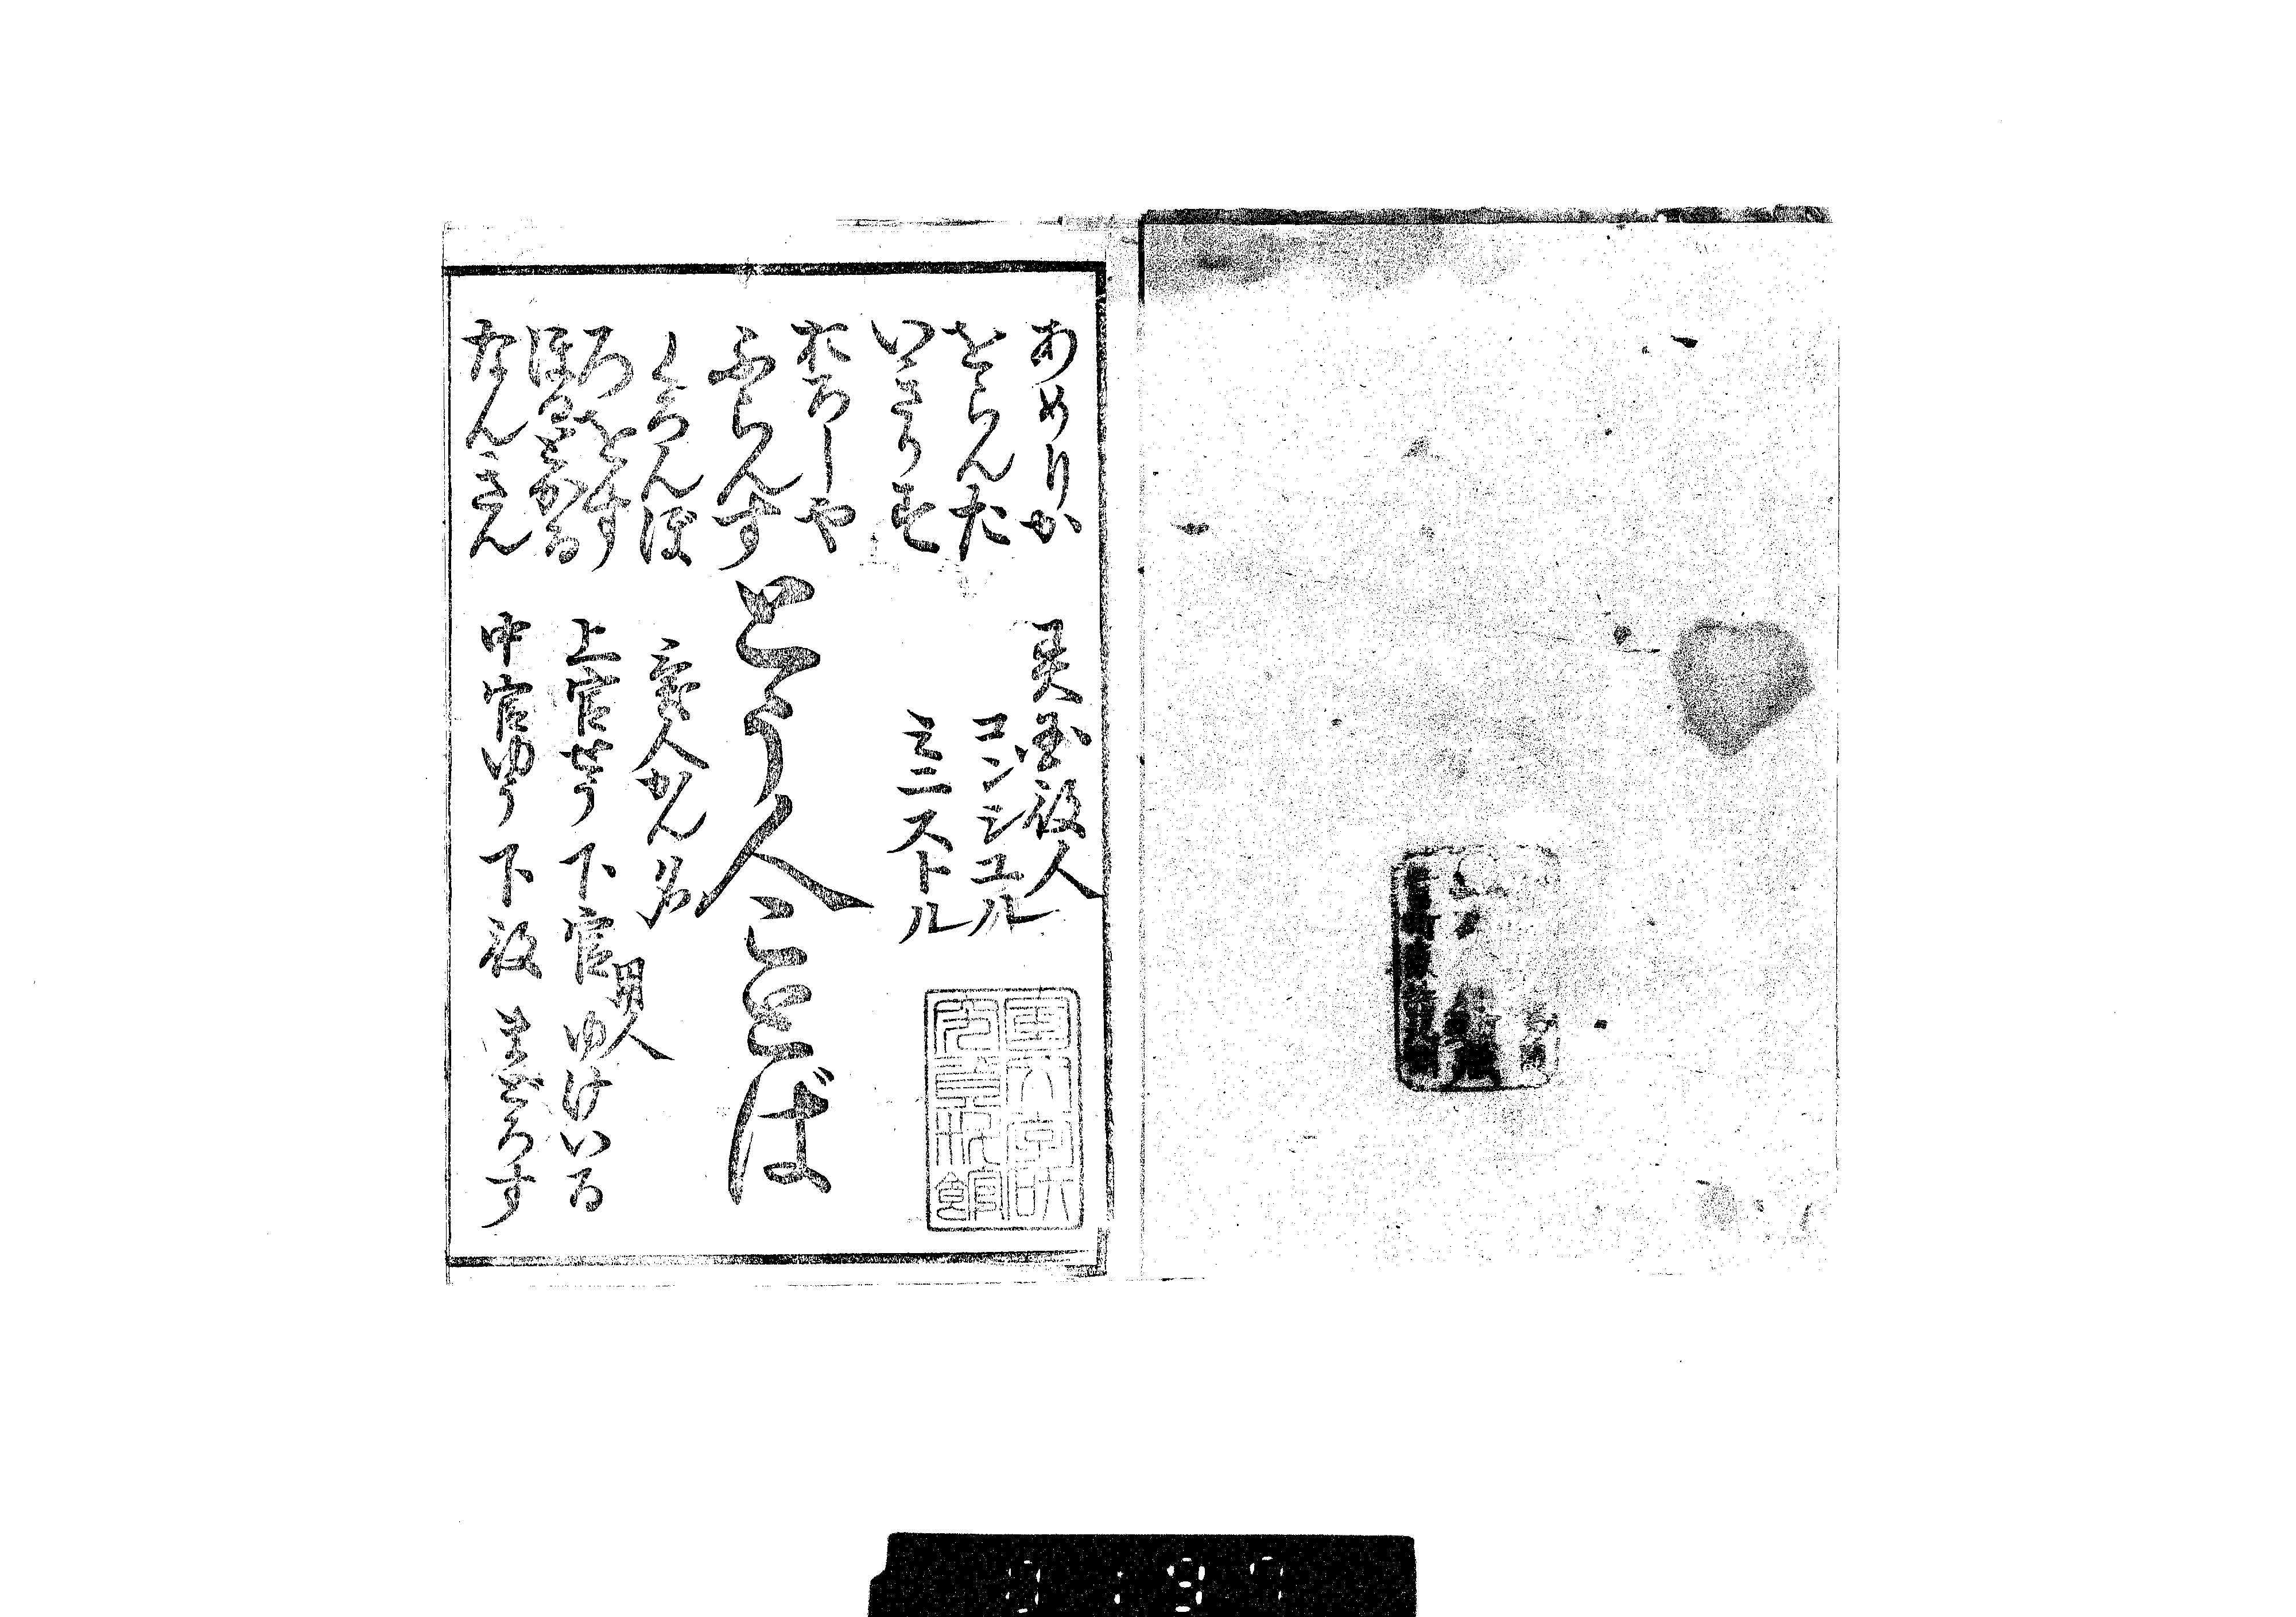 あめりか
をらんだ
いぎりす
おろしや
ふらんす
くろんぼ
ろをす
ほるとがる
なんきん
異国役人
コンシユル
ミニストル
とう人ことば
異人かん名
上官せう 下官 男人 ゆけいる
中官ゆう 下役 まどろす